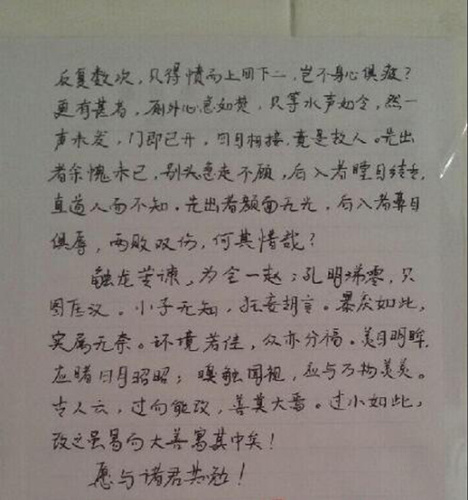 反复数次，只得愤而上四下二，岂不身心俱疲？
更有甚者，厕外心急如焚，只等水声如令，然一
声未发，门即已开，四目相接，竟是故人。先出
者余愧未已，别头急走不顾，后入者瞠目结舌，
直道人而不知。先出者颜面无光，后入者鼻目
俱辱，两败双伤，何其惜哉？
触龙苦谏，为全一赵；孔明涕零，只
图匡汉。小子无知，狂妄胡言。暴戾如此，
实属无奈。环境若佳，众亦分福。美目明眸，
应睹日月昭昭；嗅触闻视，应与万物美美。
古人云，过而能改，善莫大焉。过小如此，
改之虽易而大善寓其中矣！
愿与诸君共勉！